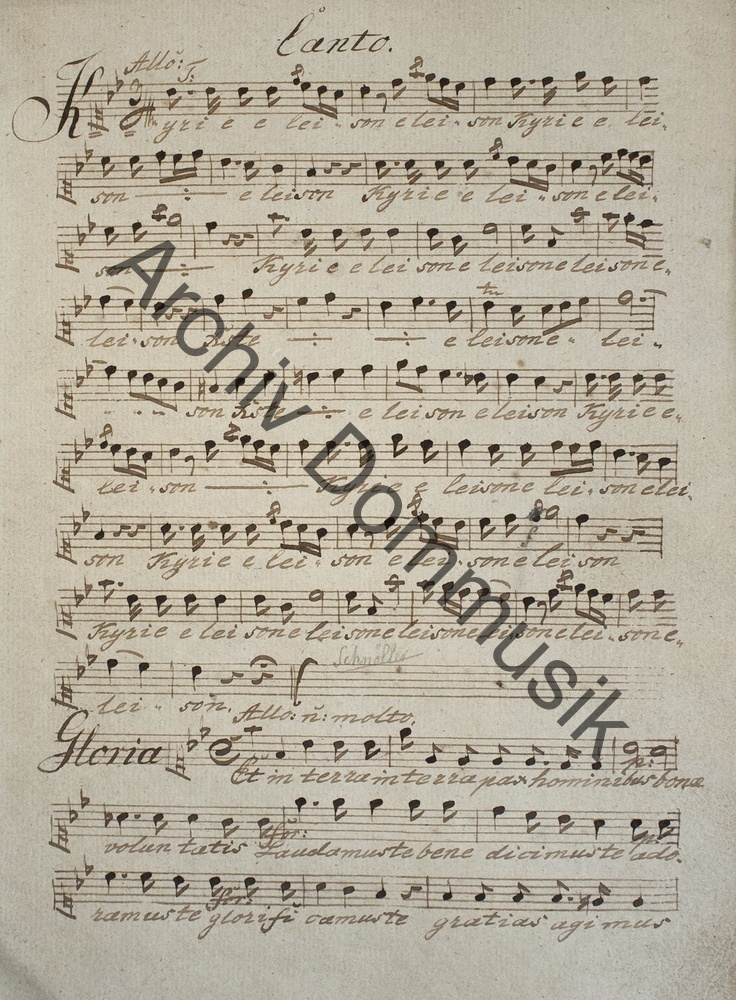 Canto.
Allo: T:
Kyrie e lei - son e lei - son Kyrie e lei -
son e leison Kyrie e lei - son e lei -
son Kyrie e lei son e leison e leison e -
lei - son Xste e leison e - lei -
son Xste e leison e leison Kyrie e -
lei - son Kyrie e leison e lei - son e lei -
son Kyrie e lei - son e lei - son e lei son
Kyrie e lei son e leison e leison e leison e lei - son e -
lei - son.
Schneller
Allo: ñ: molto.
Gloria
p:
Et in terra in terra pax hominibus bonæ
for:
voluntatis Laudamus te bene dicimus te ado -
for:
ramus te glorifi camus te gratias agimus
Archiv Dommusik